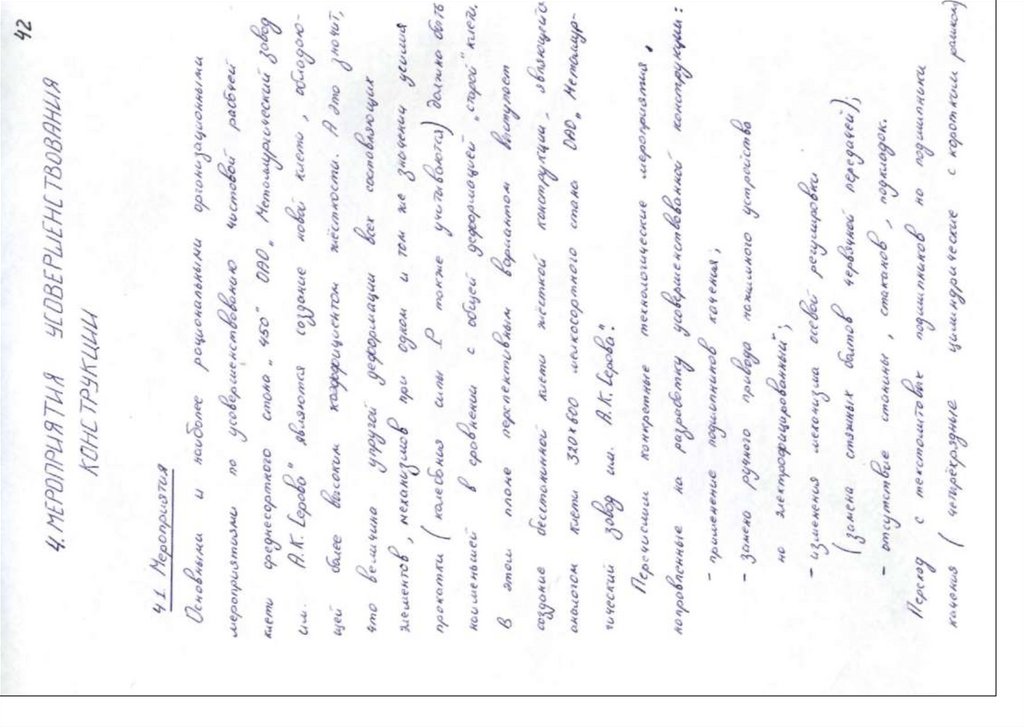 42
4. МЕРОПРИЯТИЯ УСОВЕРШЕНСТВОВАНИЯ
КОНСТРУКЦИИ
4.1. Мероприятия
Основными и наиболее рациональными организационными
мероприятиями по усовершенствованию чистовой рабочей
клети среднесортного стана „450" ОАО „Металлургический завод
им. А.К. Серова" являются создание новой клети, обладаю-
щей более высоким коэффициентом жёсткости. А это значит,
что величина упругой деформации всех составляющих
элементов, механизмов при одном и том же значении усилия
прокатки (колебания силы Р также учитываются) должна быть
наименьшей в сравнении с общей деформацией „старой" клети.
В этом плане перспективным вариантом выступает
создание бесстанинной клети жёсткой конструкции, являющейся
аналогом клети 320×600 мелкосортного стана ОАО „Металлур-
гический завод им. А.К. Серова".
Перечислим конкретные технологические мероприятия,
направленные на разработку усовершенствованной конструкции:
- применение подшипников качения;
- замена ручного привода нажимного устройства
на электрифицированный;
- изменения механизма осевой регулировки
(замена стяжных болтов червячной передачей);
- отсутствие станины, стаканов, подкладок.
Переход с текстолитовых подшипников на подшипники
качения (четырёхрядные цилиндрические с короткими роликами)